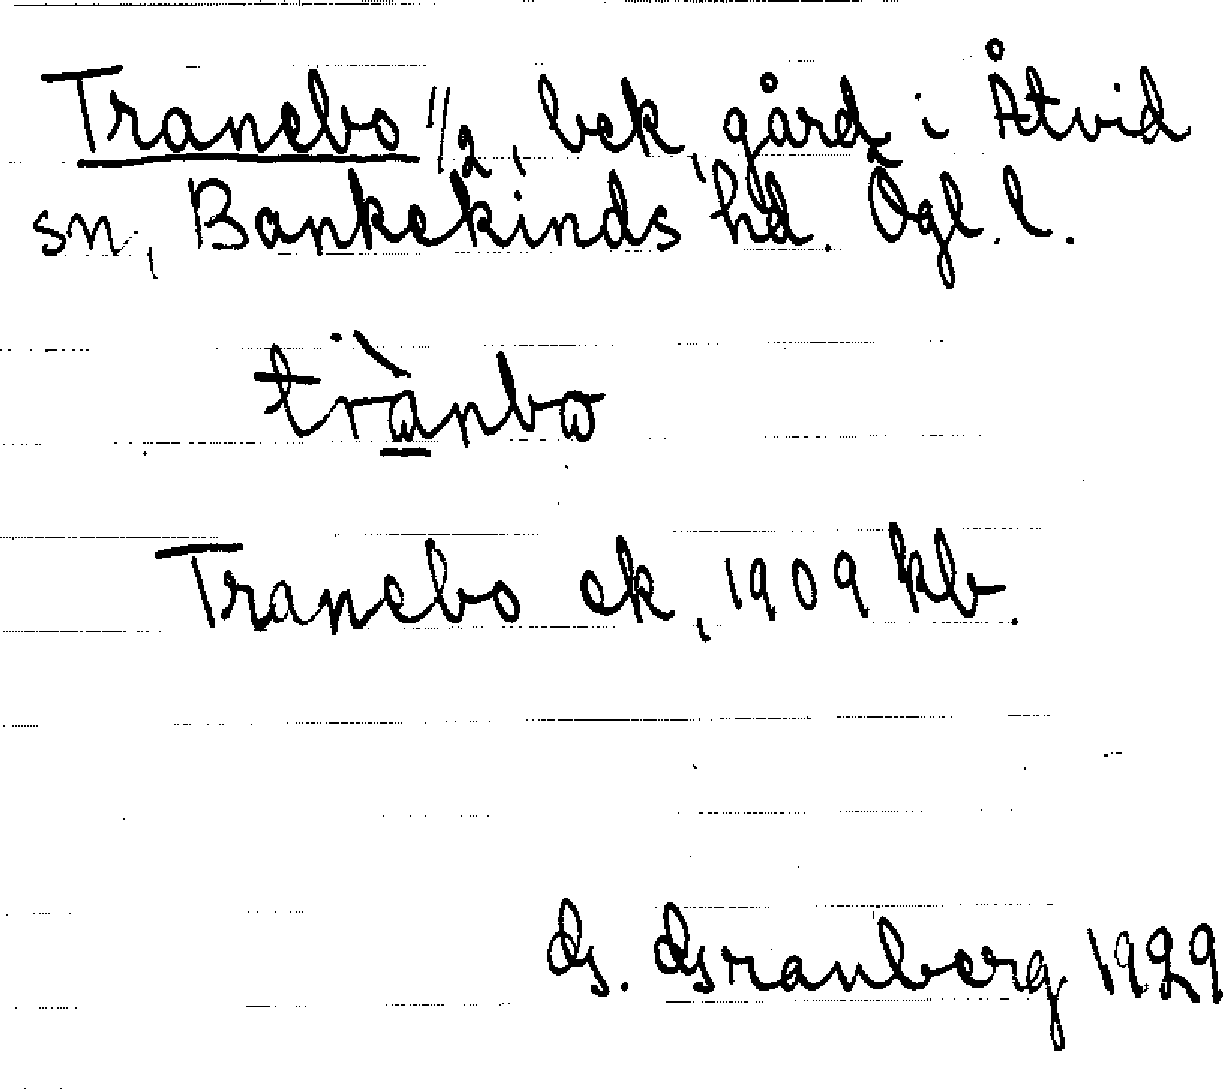 Tranebo 1/2, bek, gård i Åtvid
sn, Bankekinds hd. Ögl. l.
trànbo
Tranebo ek, 1909 kb.
G. Granberg 1929